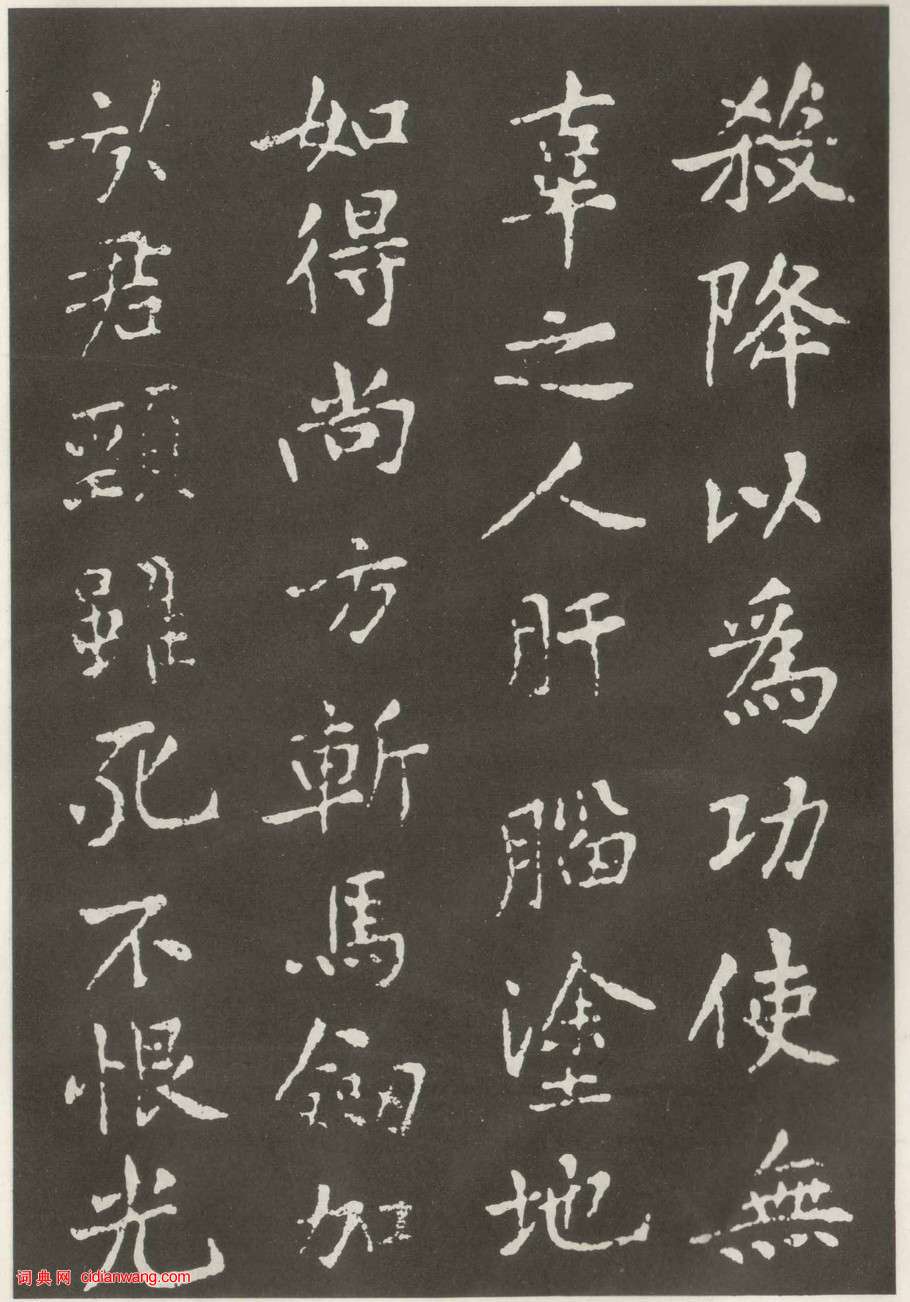 殺降以爲功使無
辜之人肝腦塗地
如得尚方斬馬劒加
於君頸雖死不恨光
词典网 cidianwang.com